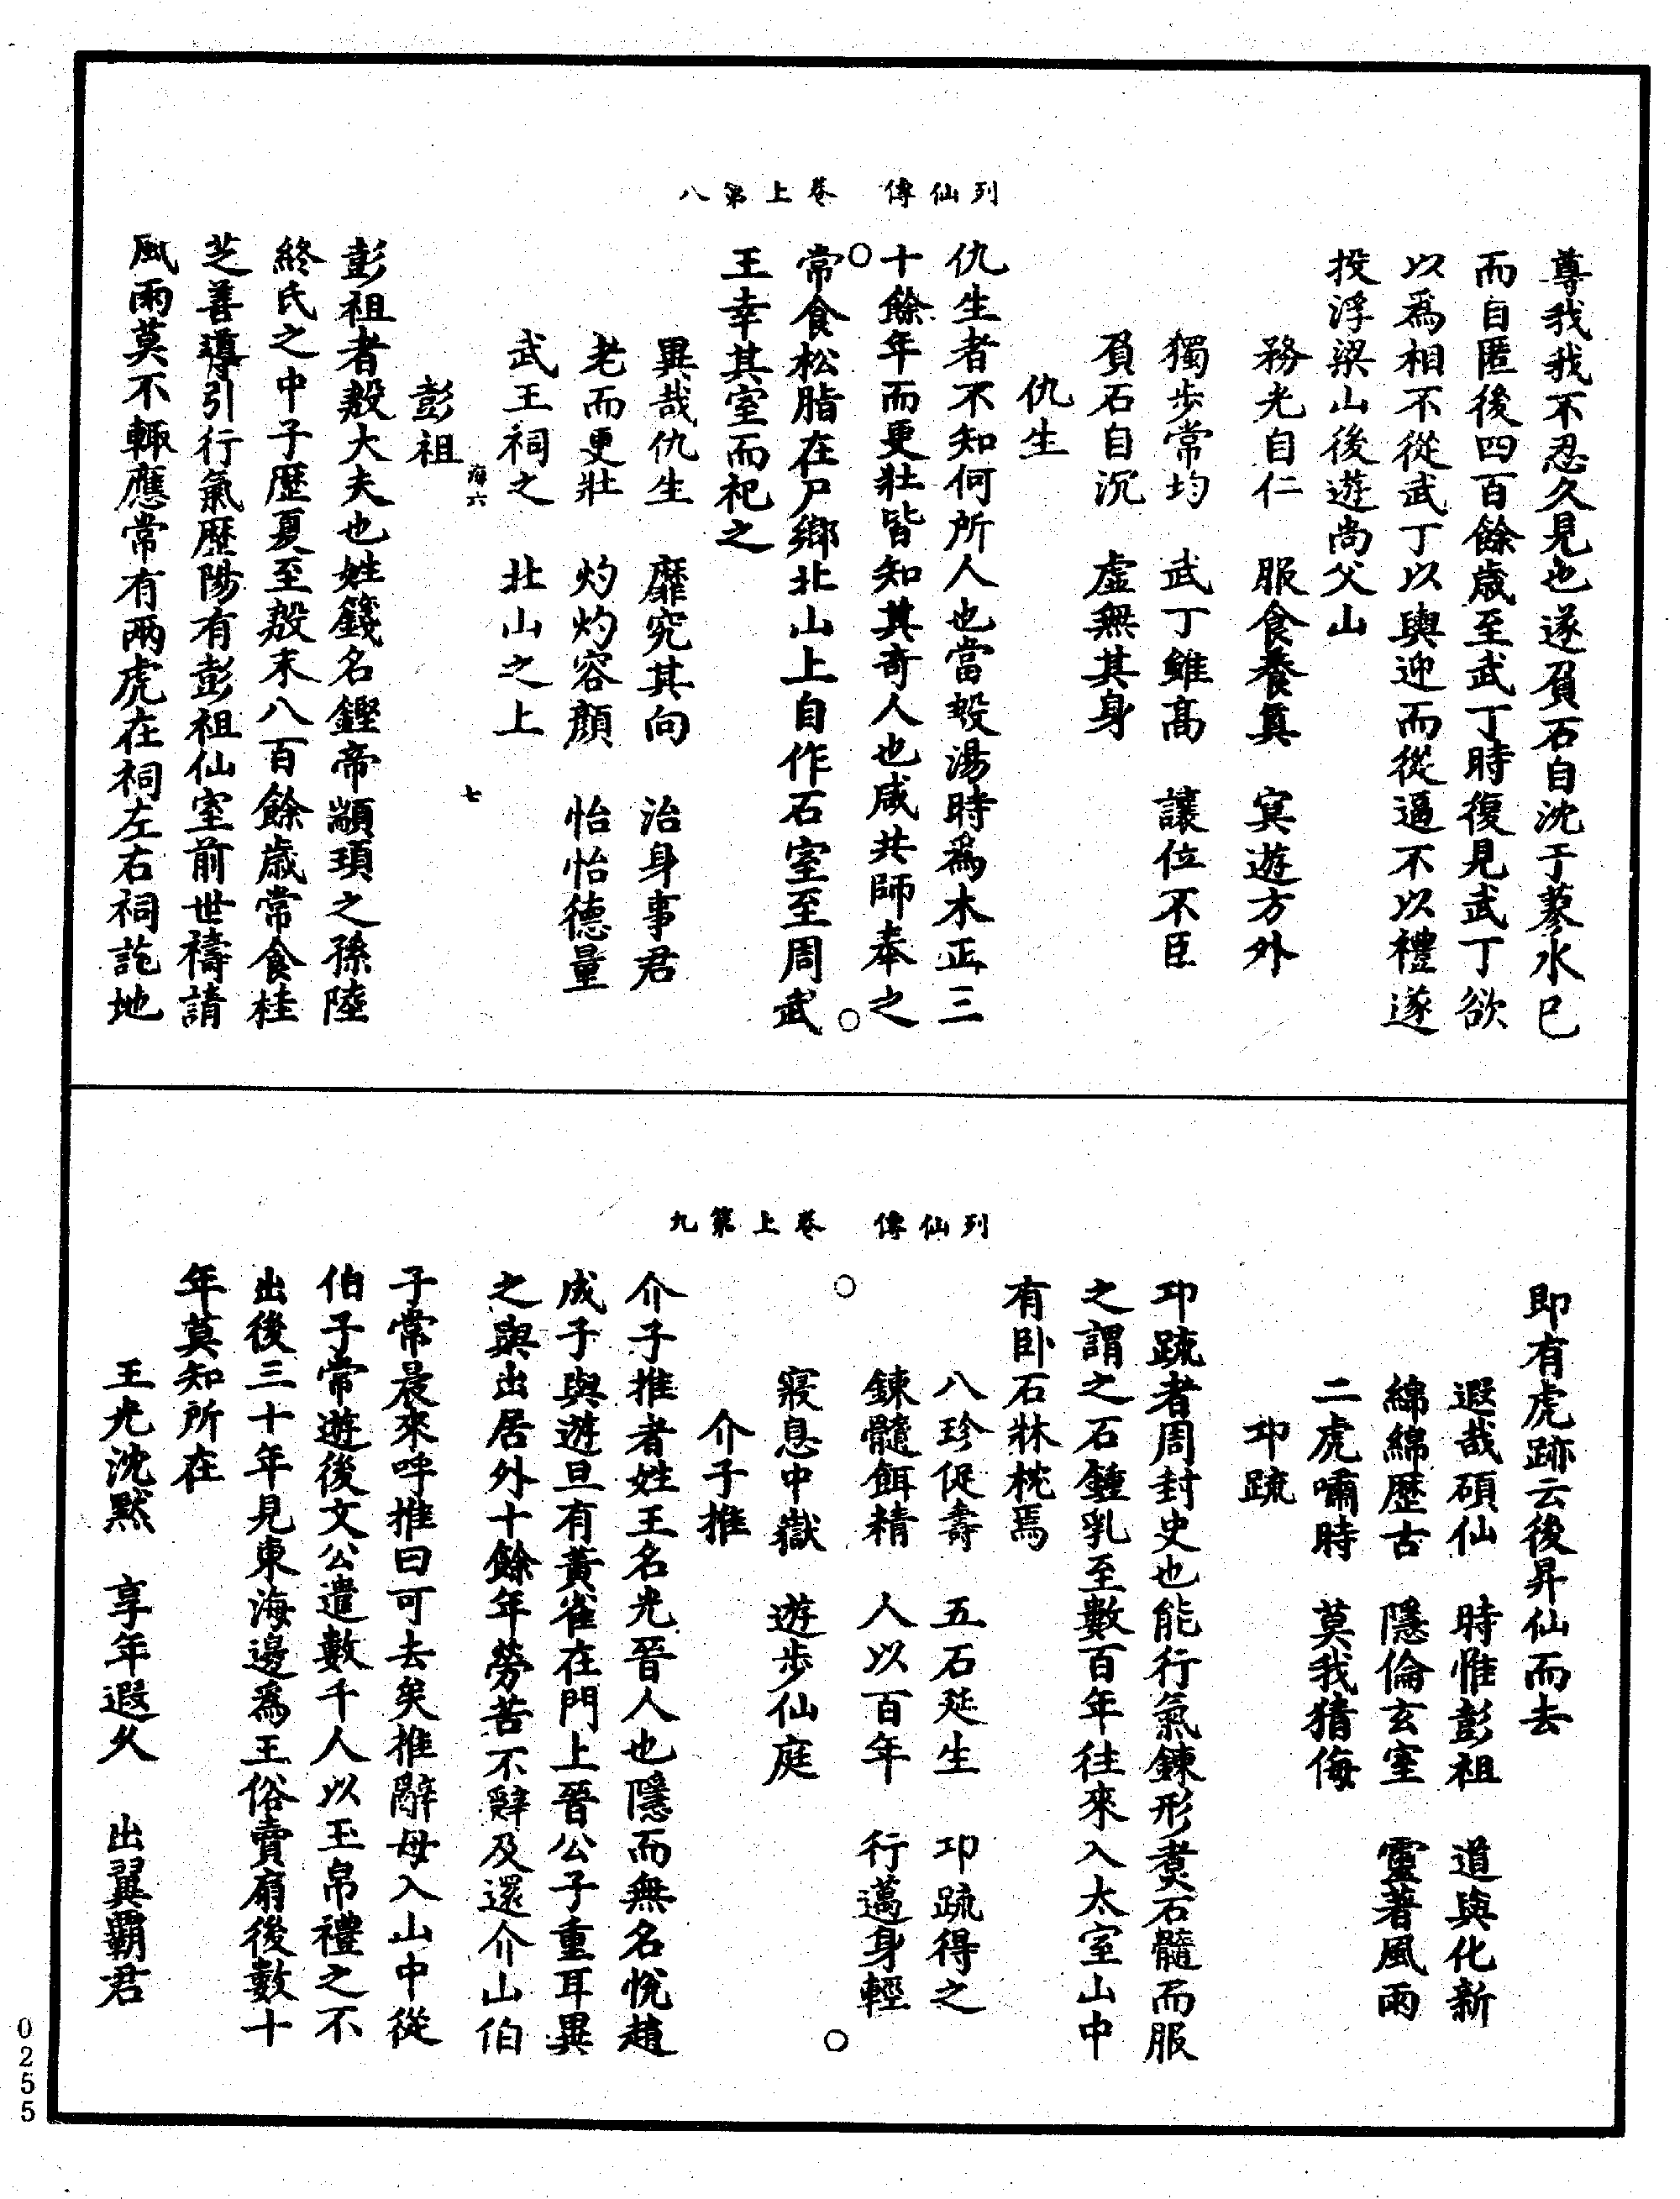 列仙傳　卷上第八
尊我我不忍久見也遂負石自沈于蓼水已
而自匿後四百餘歲至武丁時復見武丁欲
以爲相不從武丁以輿迎而從逼不以禮遂
投浮梁山後遊尚父山
務光自仁　服食養眞　冥遊方外
獨步常均　武丁雖高　讓位不臣
負石自沉　虛無其身
仇生
仇生者不知何所人也當殷湯時爲木正三
十餘年而更壯皆知其奇人也咸共師奉之
常食松脂在尸鄉北山上自作石室至周武
王幸其室而祀之
異哉仇生　靡究其向　治身事君
老而更壯　灼灼容顏　怡怡德量
武王祠之　北山之上
海六　七
彭祖
彭祖者殷大夫也姓籛名鏗帝顓頊之孫陸
終氏之中子歷夏至殷末八百餘歲常食桂
芝善導引行氣歷陽有彭祖仙室前世禱請
風雨莫不輒應常有兩虎在祠左右祠訖地
列仙傳　卷上第九
即有虎跡云後昇仙而去
遐哉碩仙　時惟彭祖　道與化新
綿綿歷古　隱倫玄室　靈著風雨
二虎嘯時　莫我猜侮
卭疏
卭疏者周封史也能行氣鍊形煑石髓而服
之謂之石鍾乳至數百年往來入太室山中
有卧石牀枕焉
八珍促壽　五石延生　卭疏得之
鍊髓餌精　人以百年　行邁身輕
寢息中嶽　遊步仙庭
介子推
介子推者姓王名光晉人也隱而無名悅趙
成子與遊旦有黃雀在門上晉公子重耳異
之與出居外十餘年勞苦不辭及還介山伯
子常晨來呼推曰可去矣推辭母入山中從
伯子常遊後文公遣數千人以玉帛禮之不
出後三十年見東海邊爲王俗賣扇後數十
年莫知所在
王光沈默　享年遐久　出翼霸君
0255